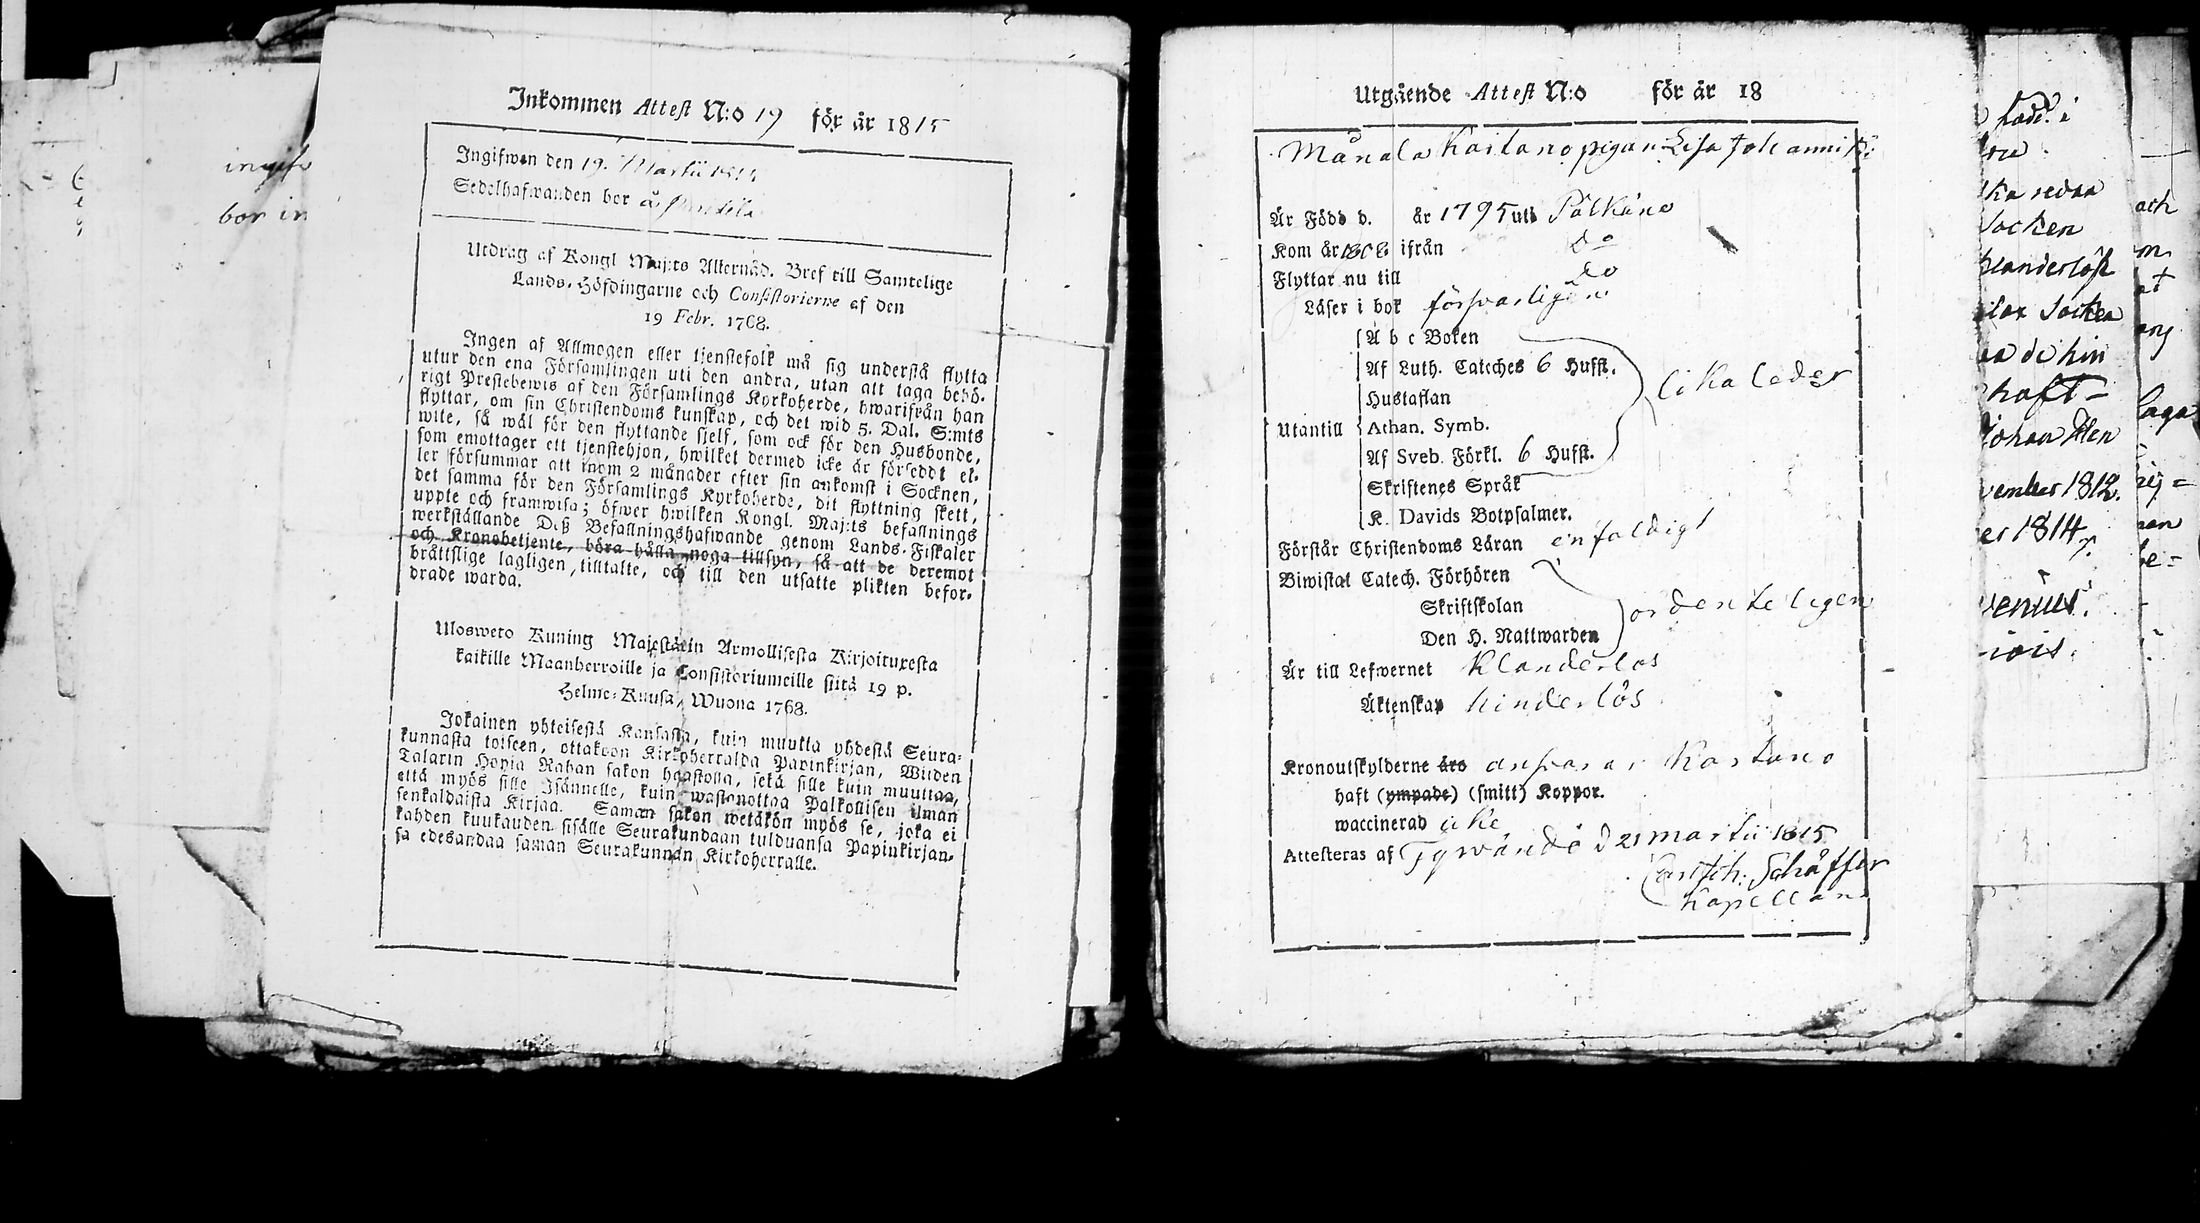 Inkommen Attest N:o 19 för år 1815
Ingifwen den 19. Martii 1815
Sedelhafwanden bor å
Utdrag af Kongl Maj:ts Allernåd. Bref till Samtelige
Lands-Höfdingarne och Consistorierne af den
19 Febr. 1768.
Ingen af Allmogen eller tjenstefolk må sig understå flytta
utur den ena Församlingen uti den andra, utan att taga behö-
rigt Prestebewis af den Församlings Kyrkoherde, hwarifrån han
flyttar, om sin Christendoms kunskap, och det wid 5. Dal. S:mts
wite, så wäl för den flyttande sjelf, som ock för den Husbonde,
som emottager ett tjenstehjon, hwilket dermed icke är försedt el-
ler försummar att inom 2 månader efter sin ankomst i Socknen,
det samma för den Församlings Kyrkoherde, dit flyttning skett,
uppte och framwisa; öfwer hwilken Kongl. Maj:ts befallnings
werkställande Deß Befallningshafwande genom Lands-Fiskaler
och Kronobetjente, böra hålla noga tillsyn, så att de deremot
brättslige lagligen tilltalte, och till den utsatte plikten befor-
drade warda.
Ulosweto Kuning Majestätin Armollisesta Kirjoituxesta
kaikille Maanherroille ja Consistoriumeille siitä 19 p.
Helme-Kuusa, Wuona 1768.
Jokainen yhteisestä Kansasta, kuin muutta yhdestä Seura-
kunnasta toiseen, ottakoon Kirkoherralda Papinkirjan, Wiiden
Talarin Hopia Rahan sakon haastolla, sekä sille kuin muuttaa,
että myös sille Isännelle, kuin wastanottaa Palkollisen ilman
senkaldaista Kirjaa. Saman sakon wetäkön myös se, joka ei
kahden kuukauden sisälle Seurakundaan tulduansa Papinkirjan-
sa edesandaa saman Seurakunnan Kirkoherralle.
Utgående Attest N:o för år 18
Månala Kartano pigan Lisa Johanni
Är Född d. år 1795 uti Pälkäne
Kom år 1808 ifrån do
Flyttar nu till do
Läser i bok försvarligen
Utantill
A b c Boken
Af Luth. Cateches 6 Hufst.
Hustaflan
Athan. Symb.
Af Sveb. Förkl. 6 Hufst.
Skriftenes Språk
K. Davids Botpsalmer.
lika ledes
Förstår Christendoms Läran enfaldigt
Biwistat Catech. Förhören
Skriftskolan
Den H. Nattwarden
ordenteligen
Är till Lefwernet Klanderlös
Äktenskap hinderlös
Kronoutskylderne års ansvarar Kartano
haft (ympade) (smitt) Koppor.
waccinerad icke
Attesteras af Tyrwändö d 21 Martii 1815
Schäffer
Kapellan
bor in
född i
Socken
Socken
de hin
haft
Johan
vember 1812.
er 1814
och